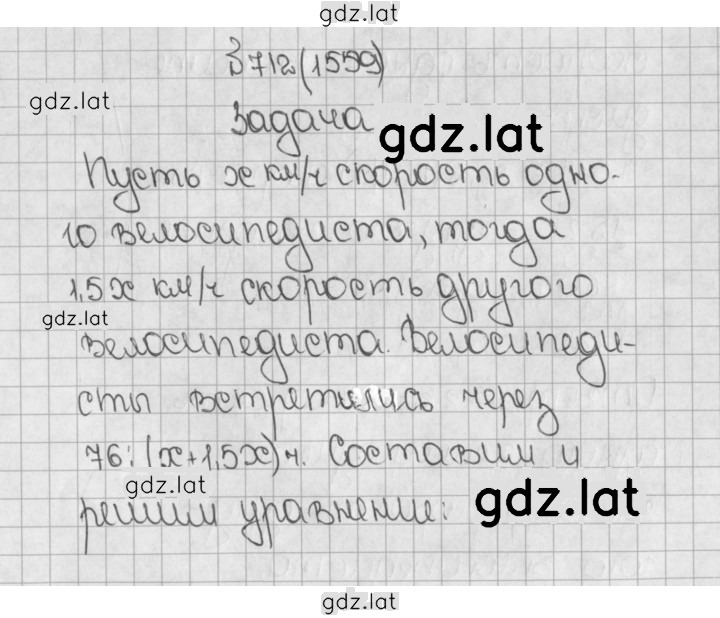 gdz.lat
З 712(1559)
gdz.lat
Задача
gdz.lat
Пусть x км/ч скорость одно-
го велосипедиста, тогда
1,5x км/ч скорость другого
gdz.lat
велосипедиста. Велосипеди-
сты встретились через
76:(x+1,5x) ч. Составим и
gdz.lat
решим уравнение:
gdz.lat
gdz.lat